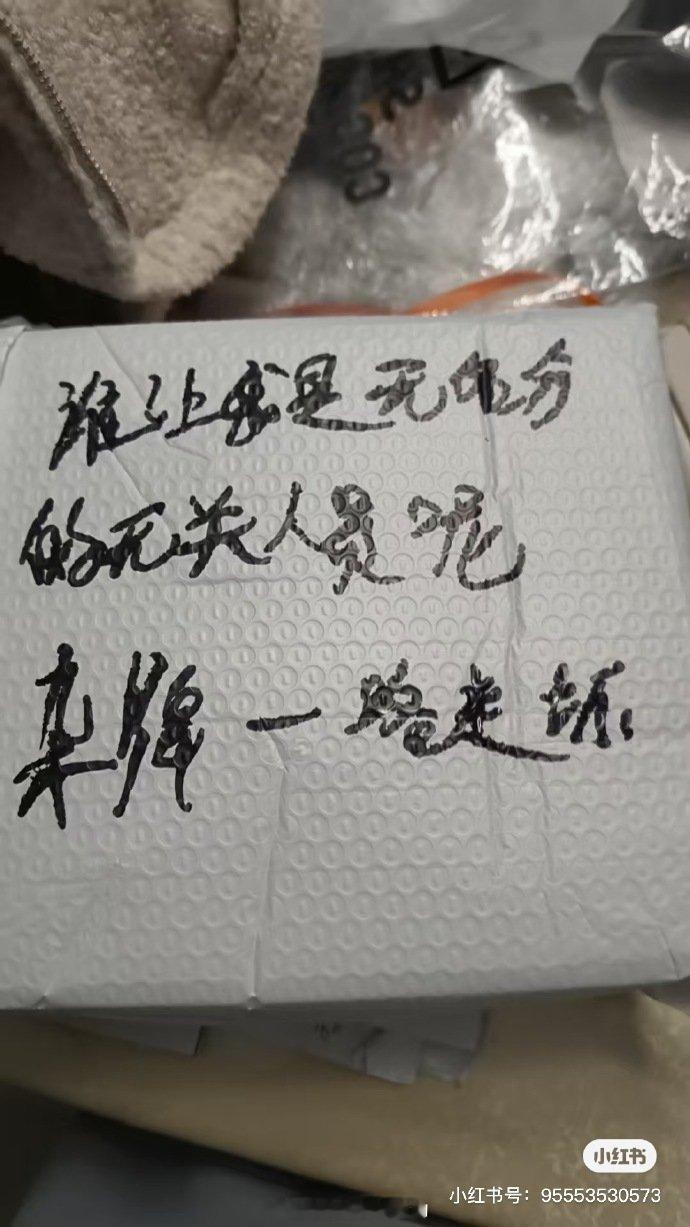 谁让我是无名分
的无关人员呢
杂牌一路走好
小红书
小红书号：95553530573